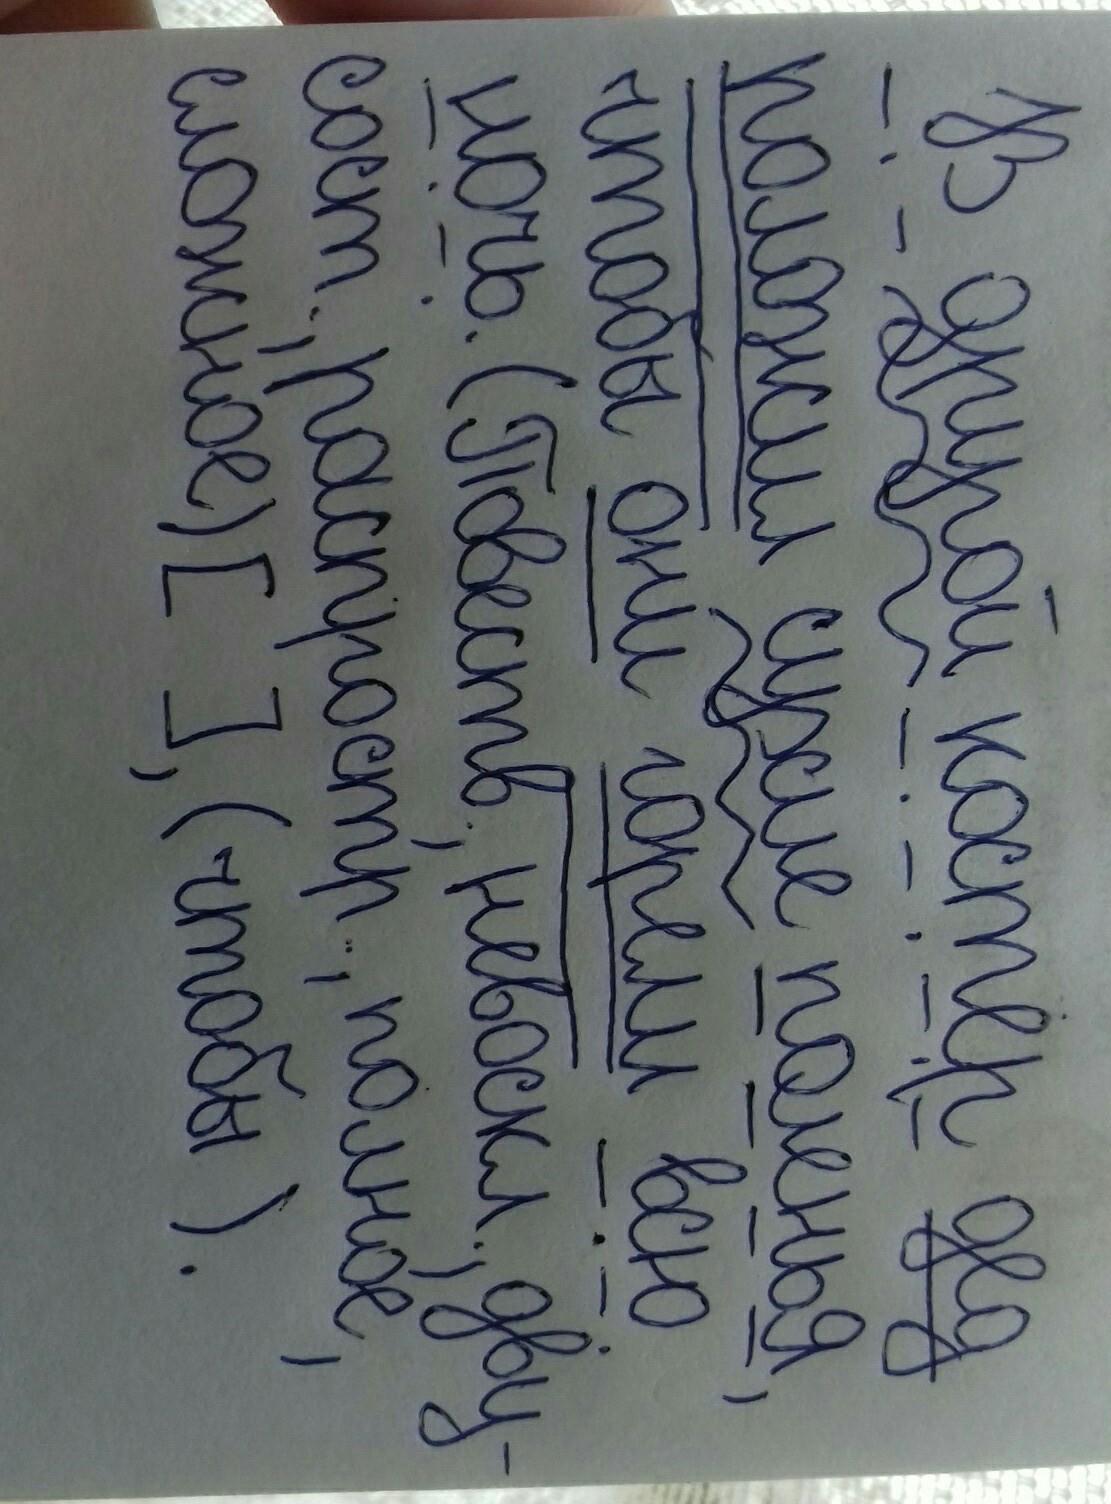 В другой костёр два
положил сухие поленья,
чтобы они горели всю
ночь. (Повеств., невоскл., дву-
сост., распростр., полное,
сложное) [ ], (чтобы ).